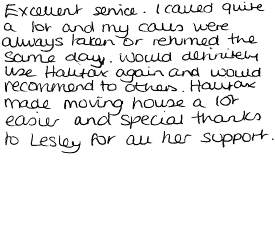 Excellent service. I called quite
a lot and my calls were
always taken or returned the
same day. Would definitely
use Halifax again and would
recommend to others. Halifax
made moving house a lot
easier and special thanks
to Lesley for all her support.